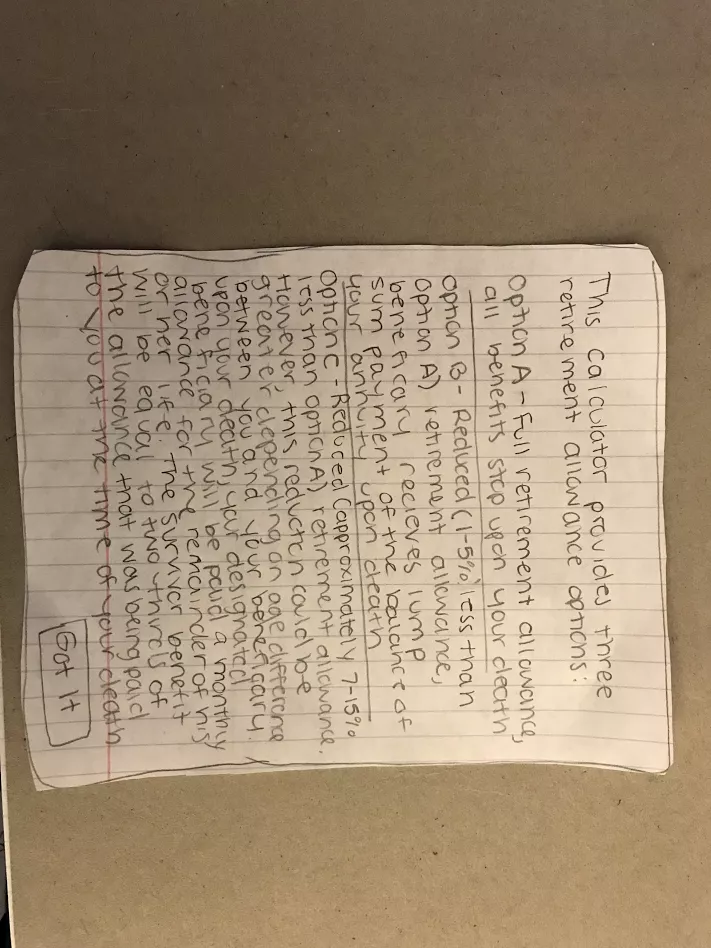 This calculator provides three
retirement allowance options:
Option A - Full retirement allowance,
all benefits stop upon your death
Option B - Reduced (1-5% less than
Option A) retirement allowance,
beneficary recieves lump
sum payment of the balance of
your annuity upon death
Option C - Reduced (approximately 7-15%
less than option A) retirement allowance.
However, this reduction could be
greater, depending on age difference
between you and your beneficary.
upon your death, your designated
beneficiary will be paid a monthly
allowance for the remainder of his
or her life. The survivor benefit
will be equal to two thirds of
the allowance that was being paid
to you at the time of your death
Got It